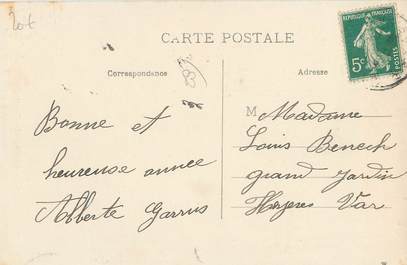 20f
CARTE POSTALE
RÉPUBLIQUE FRANÇAISE
5c
POSTES
Correspondance
83
Adresse
Bonne et
heureuse année
Alberte Garrus
M Madame
Louis Benech
grand Jardin
Hyeres Var